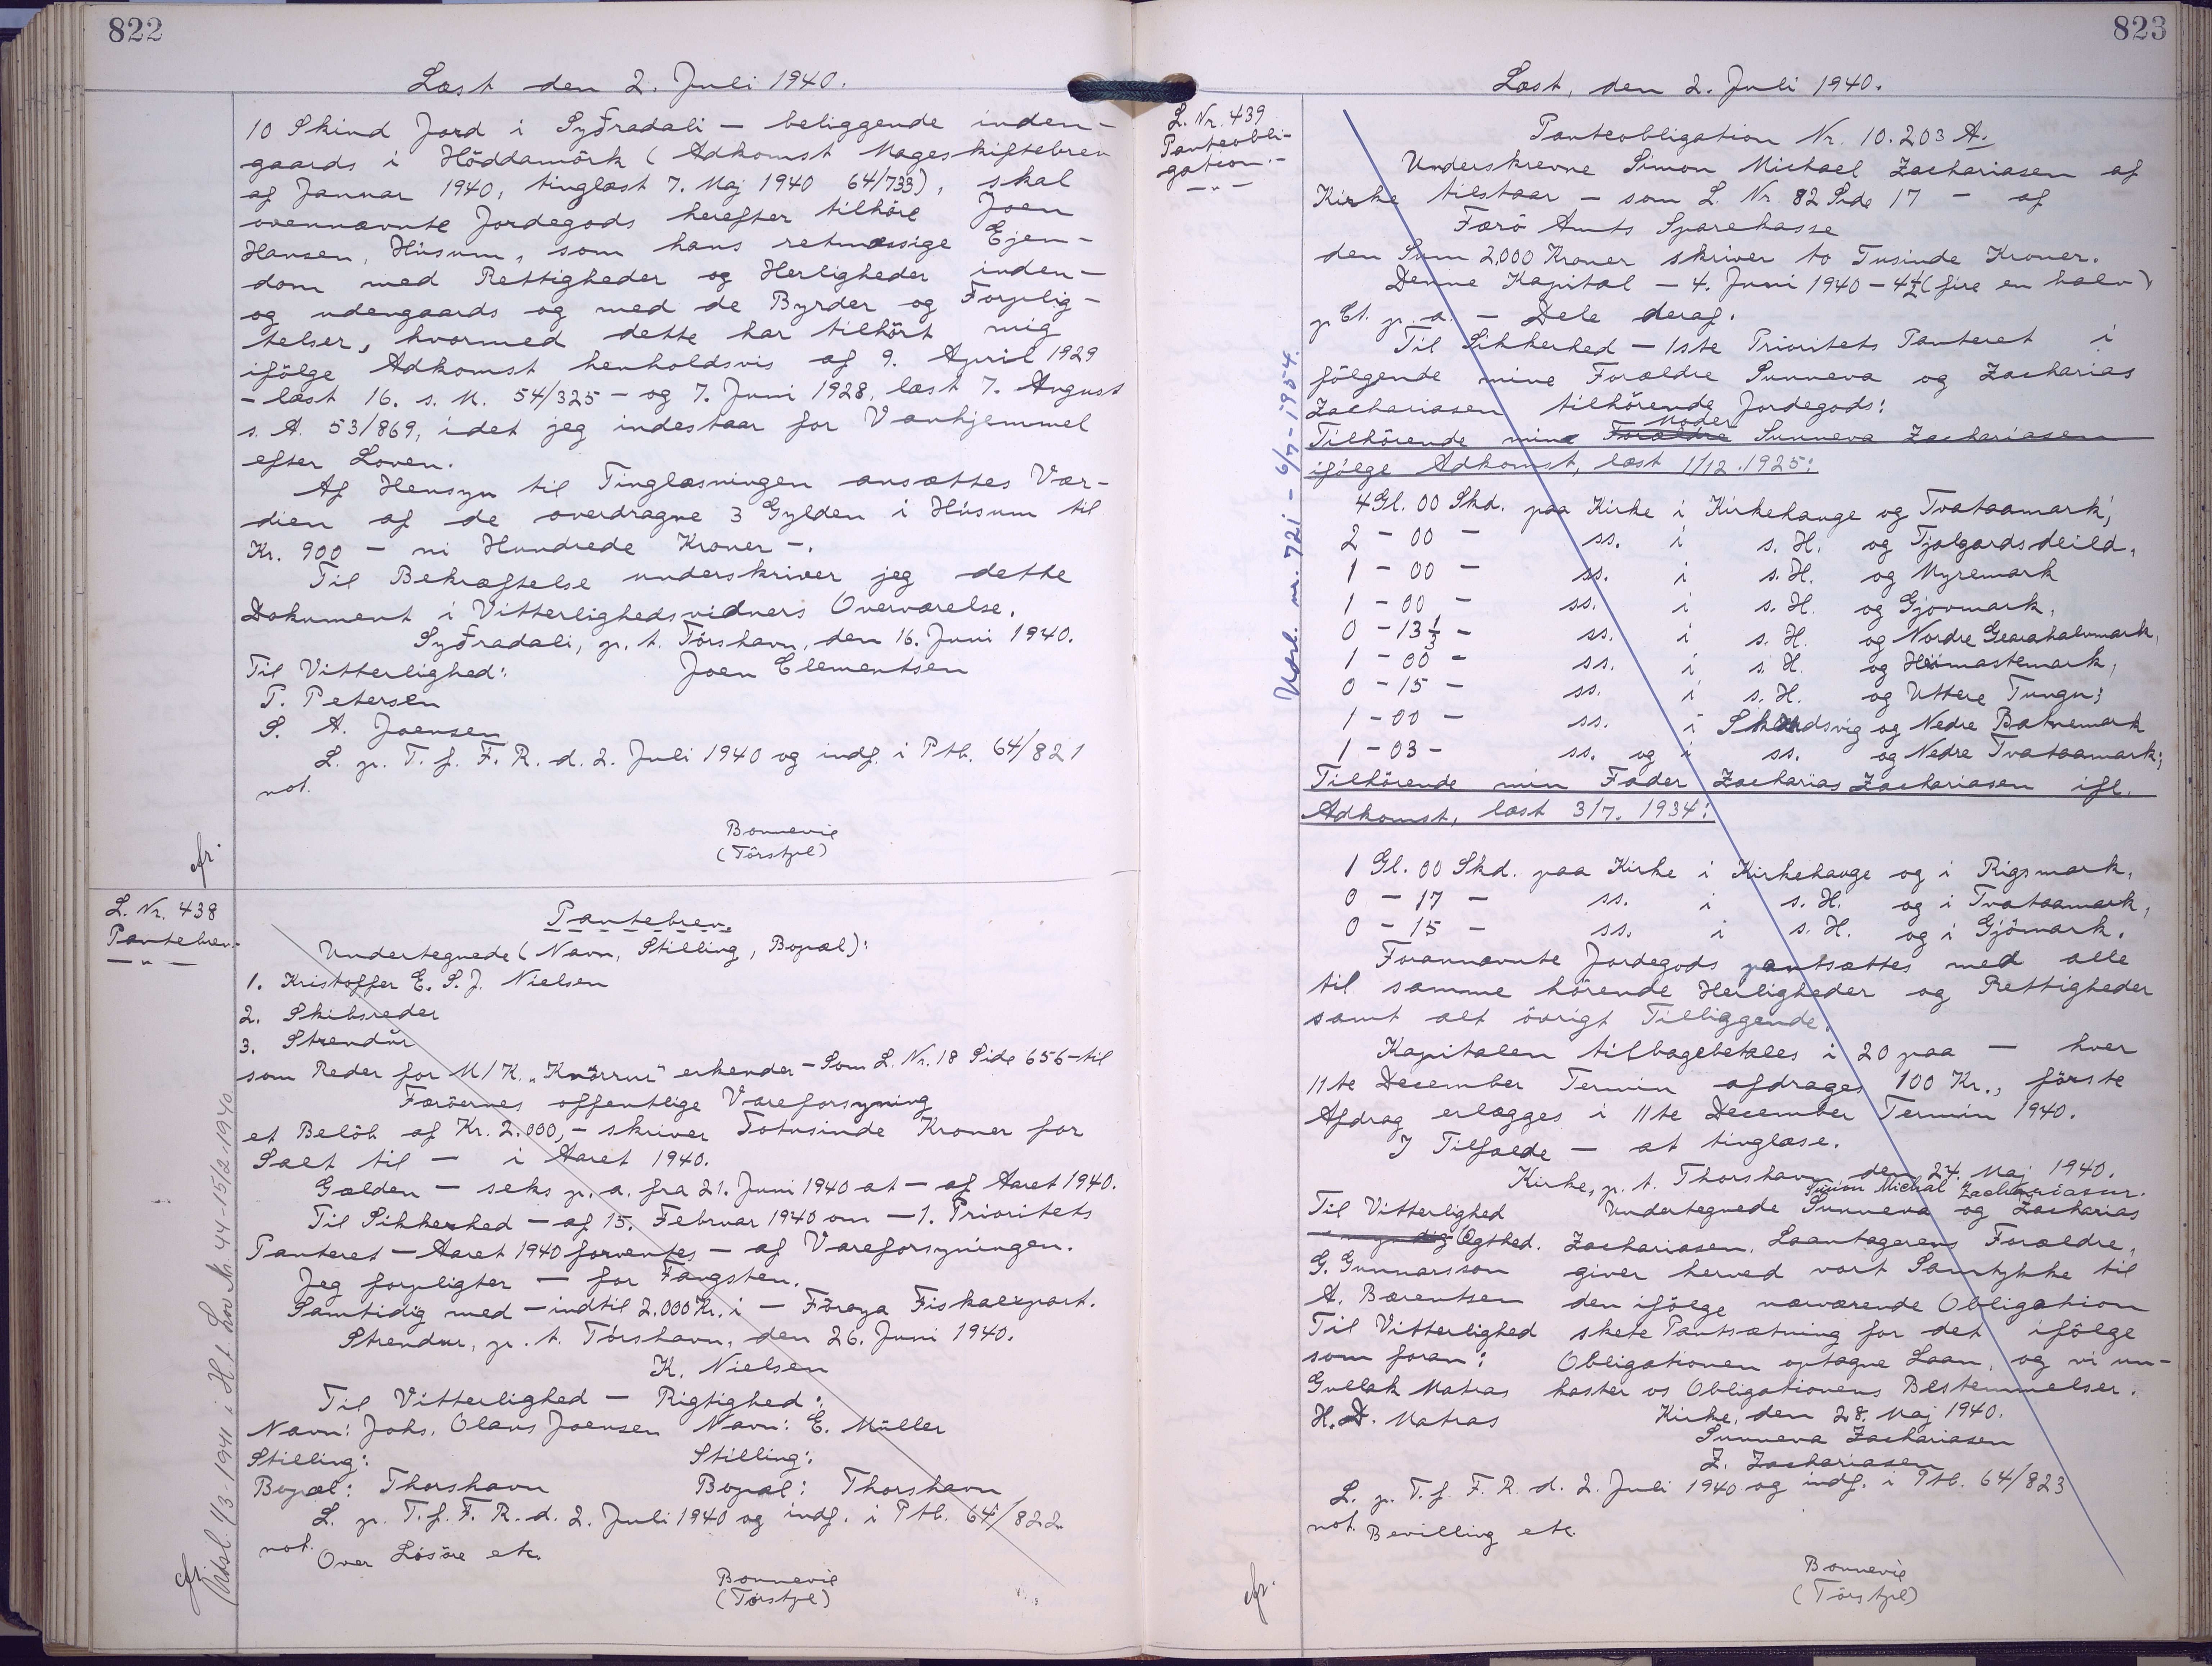 822
Læst den 2. Juli 1940.
10 Skind Jord i Syðradali - beliggende inden-
gaards i Höddamörk (Adkomst Mageskiftebrev
af Januar 1940, tinglæst 7. Maj 1940 64/733), skal
ovennævnte Jordegods herefter tilhöre Joen
Hansen, Húsum, som hans retmæssige Ejen-
dom med Rettigheder og Herligheder inden-
og udengaards og med de Byrder og Forplig-
telser, hvormed dette har tilhört mig
ifölge Adkomst henholdsvis af 9. April 1929
- læst 16. s. M. 54/325 - og 7. Juni 1928, læst 7. August
s. A. 53/869, idet jeg indestaar for Vanhjemmel
efter Loven.
Af Hensyn til Tinglæsningen ansættes Vær-
dien af de overdragne 3 Gylden i Húsum til
Kr. 900 - ni Hundrede Kroner -.
Til Bekræftelse underskriver jeg dette
Dokument i Vitterlighedsvidners Overværelse.
Syðradali, p. t. Tórshavn, den 16. Juni 1940.
Til Vitterlighed: Joen Clementsen
T. Petersen
S. A. Joensen
L. p. T. f. F. R. d. 2. Juli 1940 og indf. i Ptb. 64/821
not.
Bonnevie
(Tórstpl)
cfr.
L. Nr. 438
Pantebrev.
— " —
Pantebrev.
Undertegnede (Navn, Stilling, Bopæl):
1. Kristoffer E. S. J. Nielsen
2. Skibsreder
3. Strendur
som Reder for M/K. "Knörrur" erkender - Som L. Nr. 18 Side 656 - til
Færöernes offentlige Vareforsyning
et Belöb af Kr. 2.000,- skriver Totusinde Kroner for
Salt til — i Aaret 1940.
Gælden — seks p. a. fra 21. Juni 1940 at — af Aaret 1940.
Til Sikkerhed - af 15. Februar 1940 om — 1. Prioritets
Panteret - Aaret 1940 forventes - af Vareforsyningen.
Jeg forpligter — for Fangsten.
Samtidig med - indtil 2.000 Kr. i - Föroya Fiskaexport.
Strendur, p. t. Tórshavn, den 26. Juni 1940.
K. Nielsen
Til Vitterlighed — Rigtighed:
Navn: Johs. Olavs Joensen Navn: E. Müller
Stilling: Stilling:
Bopæl: Thorshavn Bopæl: Thorshavn
L. p. T. f. F. R. d. 2. Juli 1940 og indf. i Ptb. 64/822
not. Over Lösöre etc.
Bonnevie
(Tórstpl)
cfr
Udsl. 1/3-1941 i H. t. Lov Nr. 44-15/2.1940
823
Læst, den 2. Juli 1940.
L. Nr. 439
Panteobli-
gation.-
— " —
Panteobligation Nr. 10.203 A.
Underskrevne Simon Michael Zachariasen af
Kirke tilstaar — som L. Nr. 82 Side 17 — af
Færö Amts Sparekasse
den Sum 2,000 Kroner skriver to Tusinde Kroner.
Denne Kapital — 4. Juni 1940 - 4½ (fire en halv)
p Ct. p. a. — Dele deraf.
Til Sikkerhed - 1ste Prioritets Panteret i
fölgende mine Forældre Sunneva og Zacharias
Zachariasen tilhörende Jordegods:
Tilhörende mine Forældre Moder Sunneva Zachariasen
ifölge Adkomst, læst 1/12.1925:
4 Gl. 00 Skd. paa Kirke i Kirkehauge og Tvataamark;
2 - 00 - ss. i s. H. og Tjalgardsdeild,
1 - 00 - ss. i s. H. og Myremark
1 - 00 - ss. i s. H. og Gjovmark,
0 - 13 1/3 - ss. i s. H. og Nordre Gearahalvmark,
1 - 00 - ss. i s. H. og Heimastemark,
0 - 15 - ss. i s. H. og Uttere Tungu;
1 - 00 - ss. i Skaardsvig og Nedre Batnemark
1 - 03 - ss. og i ss. og Nedre Tvataamark;
Tilhörende min Fader Zacharias Zachariasen ifl.
Adkomst, læst 3/7. 1934:
1 Gl. 00 Skd. paa Kirke i Kirkehauge og i Rigsmark,
0 - 17 - ss. i s. H. og i Tvataamark,
0 - 15 - ss. i s. H. og i Gjómark.
Forannævnte Jordegods pantsættes med alle
til samme hörende Herligheder og Rettigheder
samt alt övrigt Tilliggende.
Kapitalen tilbagebetales i 20 paa — hver
11te December Termin afdrages 100 Kr., förste
Afdrag erlægges i 11te December Termin 1940.
I Tilfælde — at tinglæse.
Kirke, p. t. Thorshavn, den 24. Maj 1940.
Simon Michal Zachariasen.
Til Vitterlighed Undertegnede Sunneva og Zacharias
— myndig Ægthed. Zachariasen, Laantagerens Forældre,
G. Gunnarsson giver herved vort Samtykke til
A. Bærentsen den ifölge nærværende Obligation
Til Vitterlighed skete Pantsætning for det ifölge
som foran: Obligationen optagne Laan, og vi un-
Gullak Matras kaster os Obligationens Bestemmelser.
H. D. Matras Kirke, den 28. Maj 1940.
Sunneva Zachariasen
Z. Zachariasen
L. p. T. f. F. R. d. 2. Juli 1940 og indf. i Ptb. 64/823
not. Bevilling etc.
Bonnevie
(Tórstpl)
cfr.
Udsl. nr. 721 - 6/7-1954.